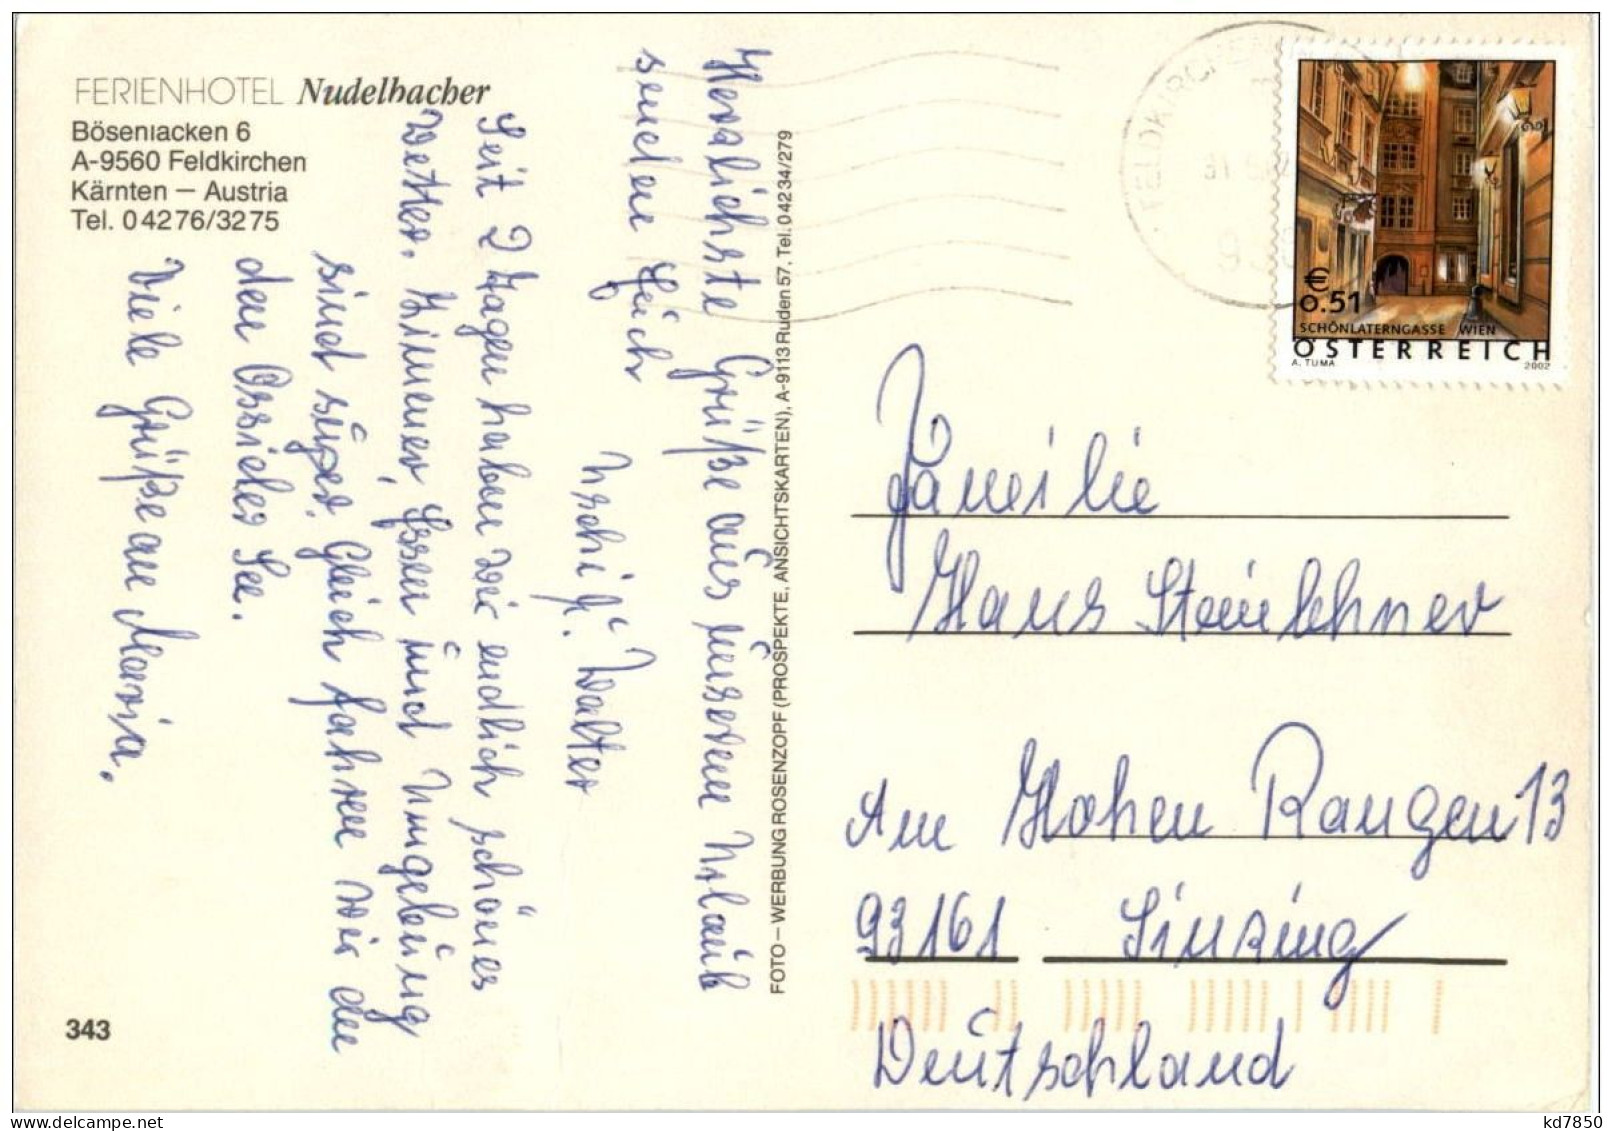 FERIENHOTEL Nudelbacher
Bösenlacken 6
A-9560 Feldkirchen
Kärnten – Austria
Tel. 0 42 76/32 75
Herzlichste Grüße aus unserem Urlaub
senden Euch
Uschi u. Walter
Seit 2 Tagen haben wir endlich schönes
Wetter. Zimmer, Essen und Umgebung
sind super. Gleich fahren wir an
den Ossicher See.
Viele Grüße an Maria.
343
FOTO – WERBUNG ROSENZOPF (PROSPEKTE, ANSICHTSKARTEN), A-9113 Ruden 57, Tel. 0 42 34/279
FELDKIRCHEN
€
0.51
SCHÖNLATERNGASSE WIEN
ÖSTERREICH
A. TUMA
2002
Familie
Hans Steinlehner
Am Hohen Rangen 13
93161 Sinzing
Deutschland
343.
kd7850